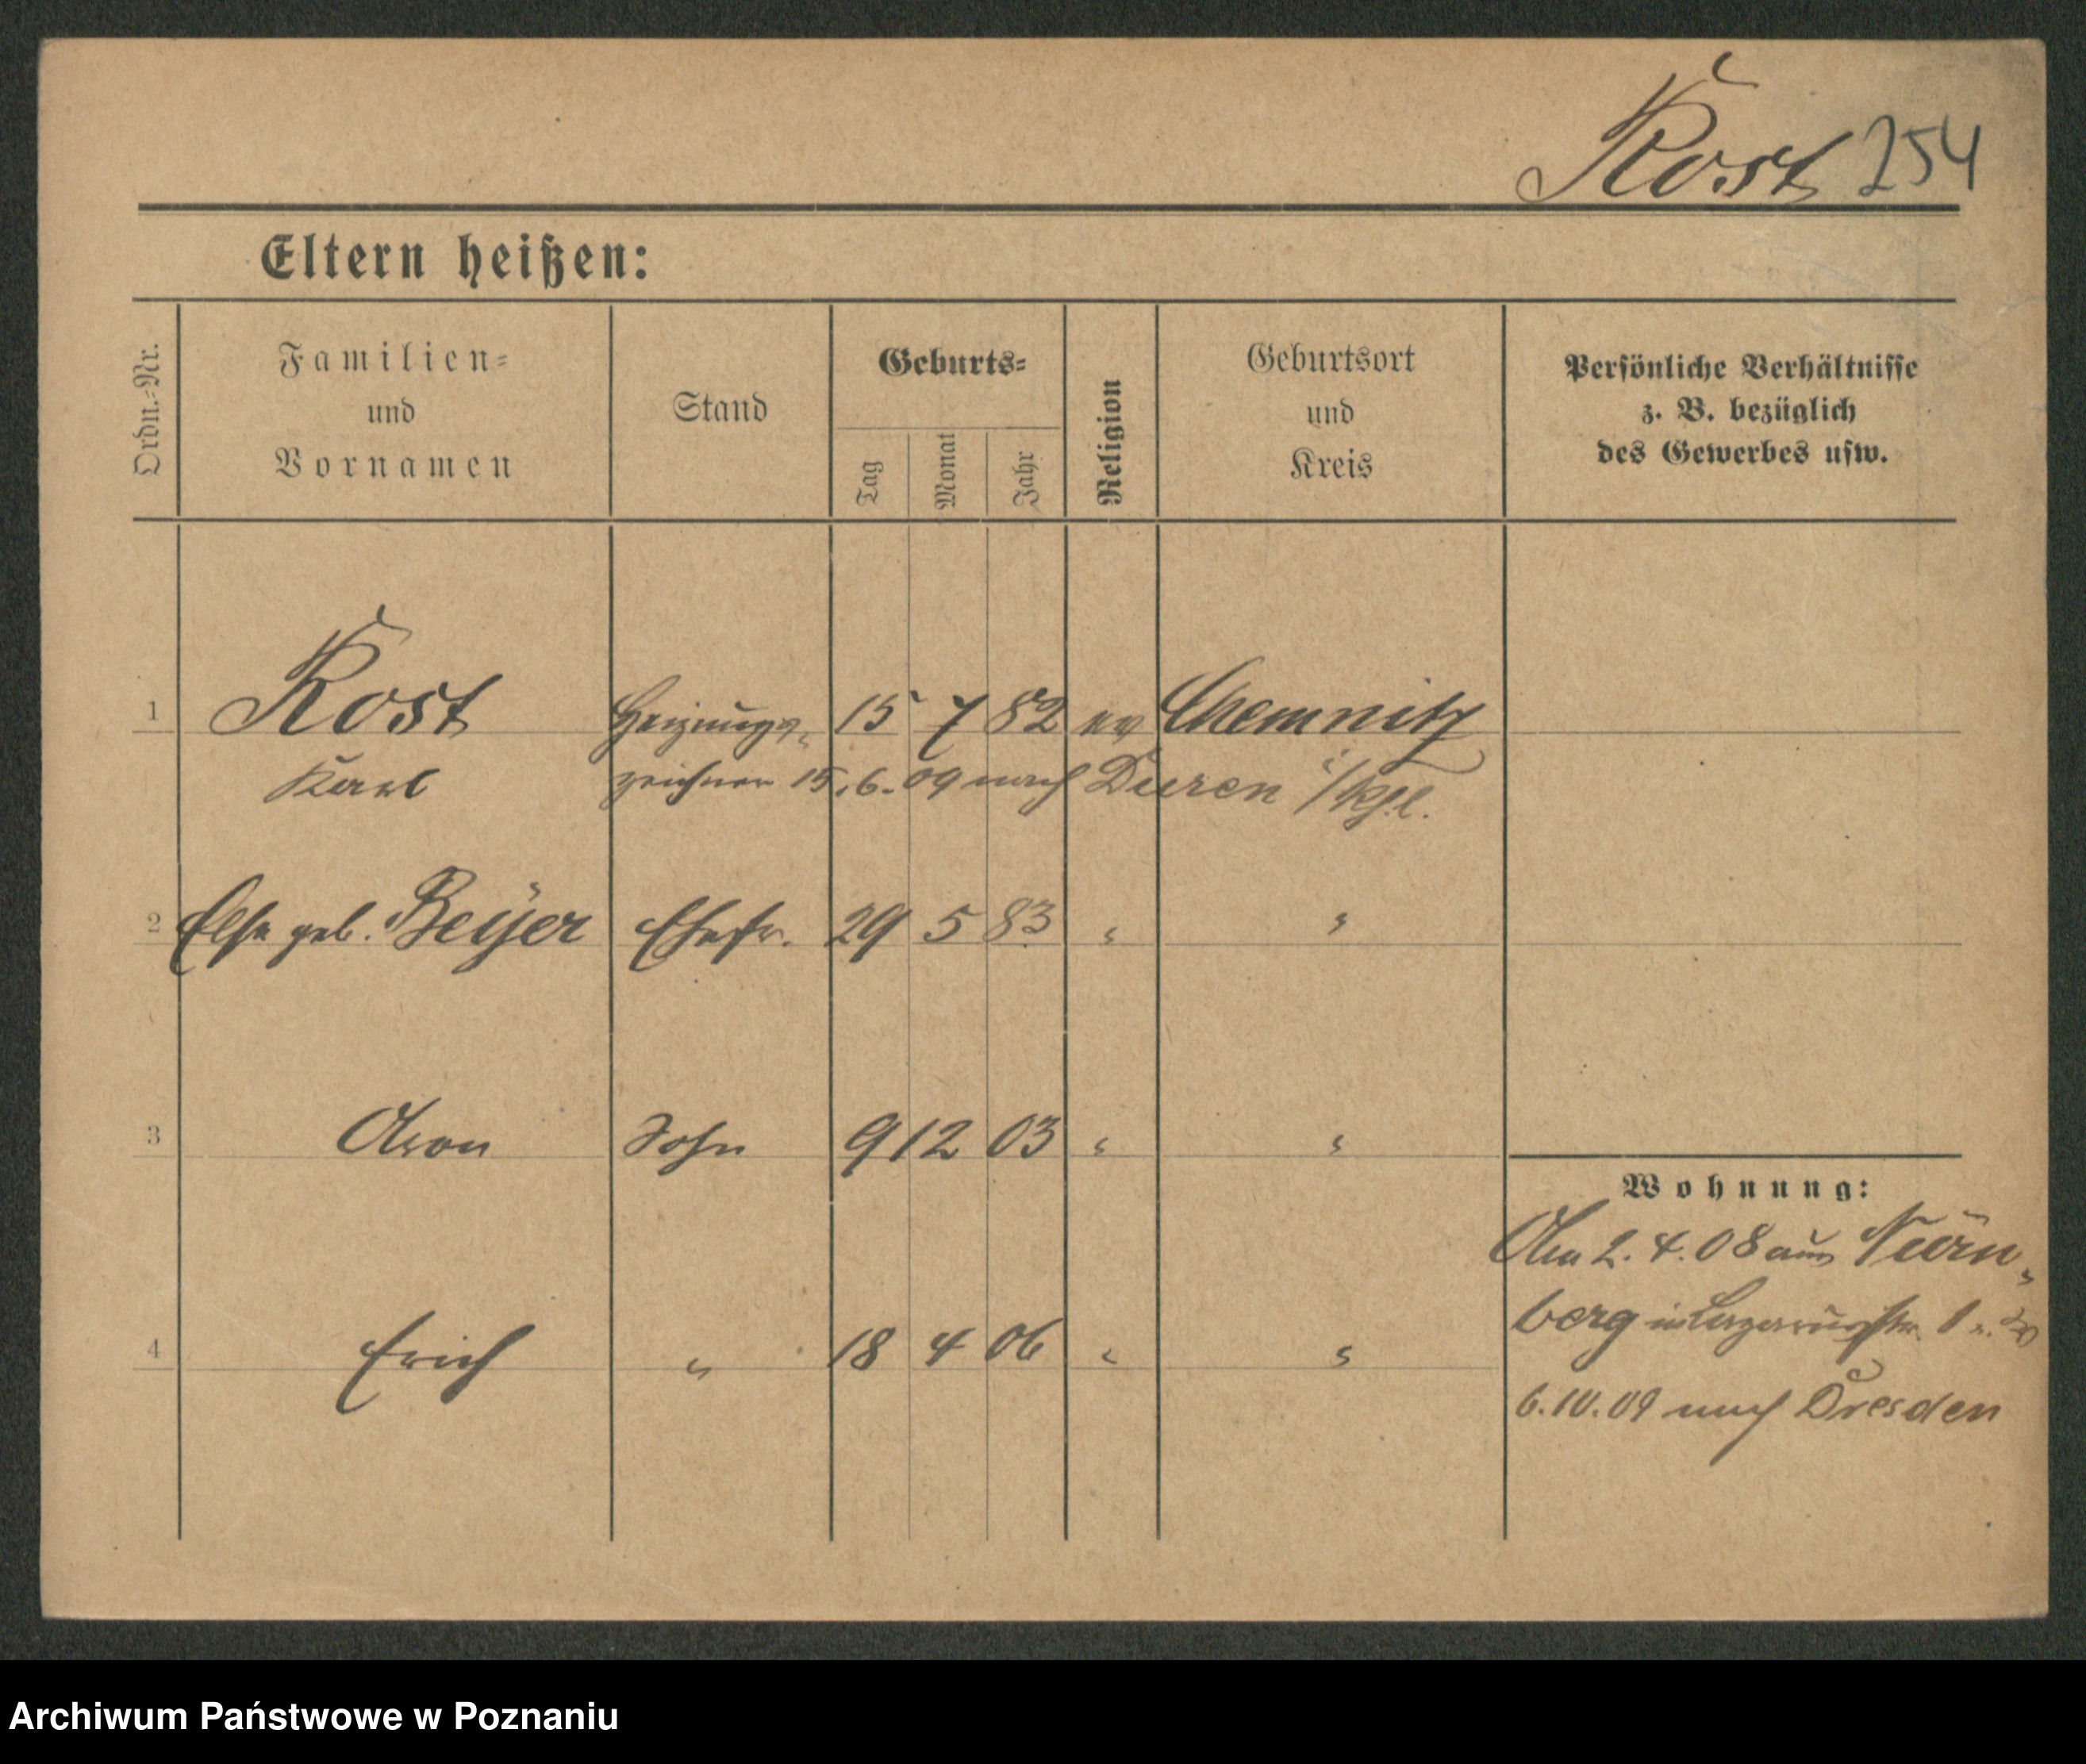 Kost 254
Eltern heißen:
Ordn.-Nr.
Familien=
und
Vornamen
Stand
Geburts=
Tag
Monat
Jahr
Religion
Geburtsort
und
Kreis
Persönliche Verhältnisse
z. B. bezüglich
des Gewerbes usw.
1 Kost Heizungs- 15 7 82 ev Chemnitz
Karl zeichner 15.6.09 nach Dueren
2 Else geb. Beyer Ehefr. 29 5 83 " "
3 Sohn 9 12 03 " "
Wohnung:
Am 2.4.08 aus Nürn-
berg in Lazarusstr. 1
4 Erich " 18 4 06 " "
6.10.09 nach Dresden
Archiwum Państwowe w Poznaniu